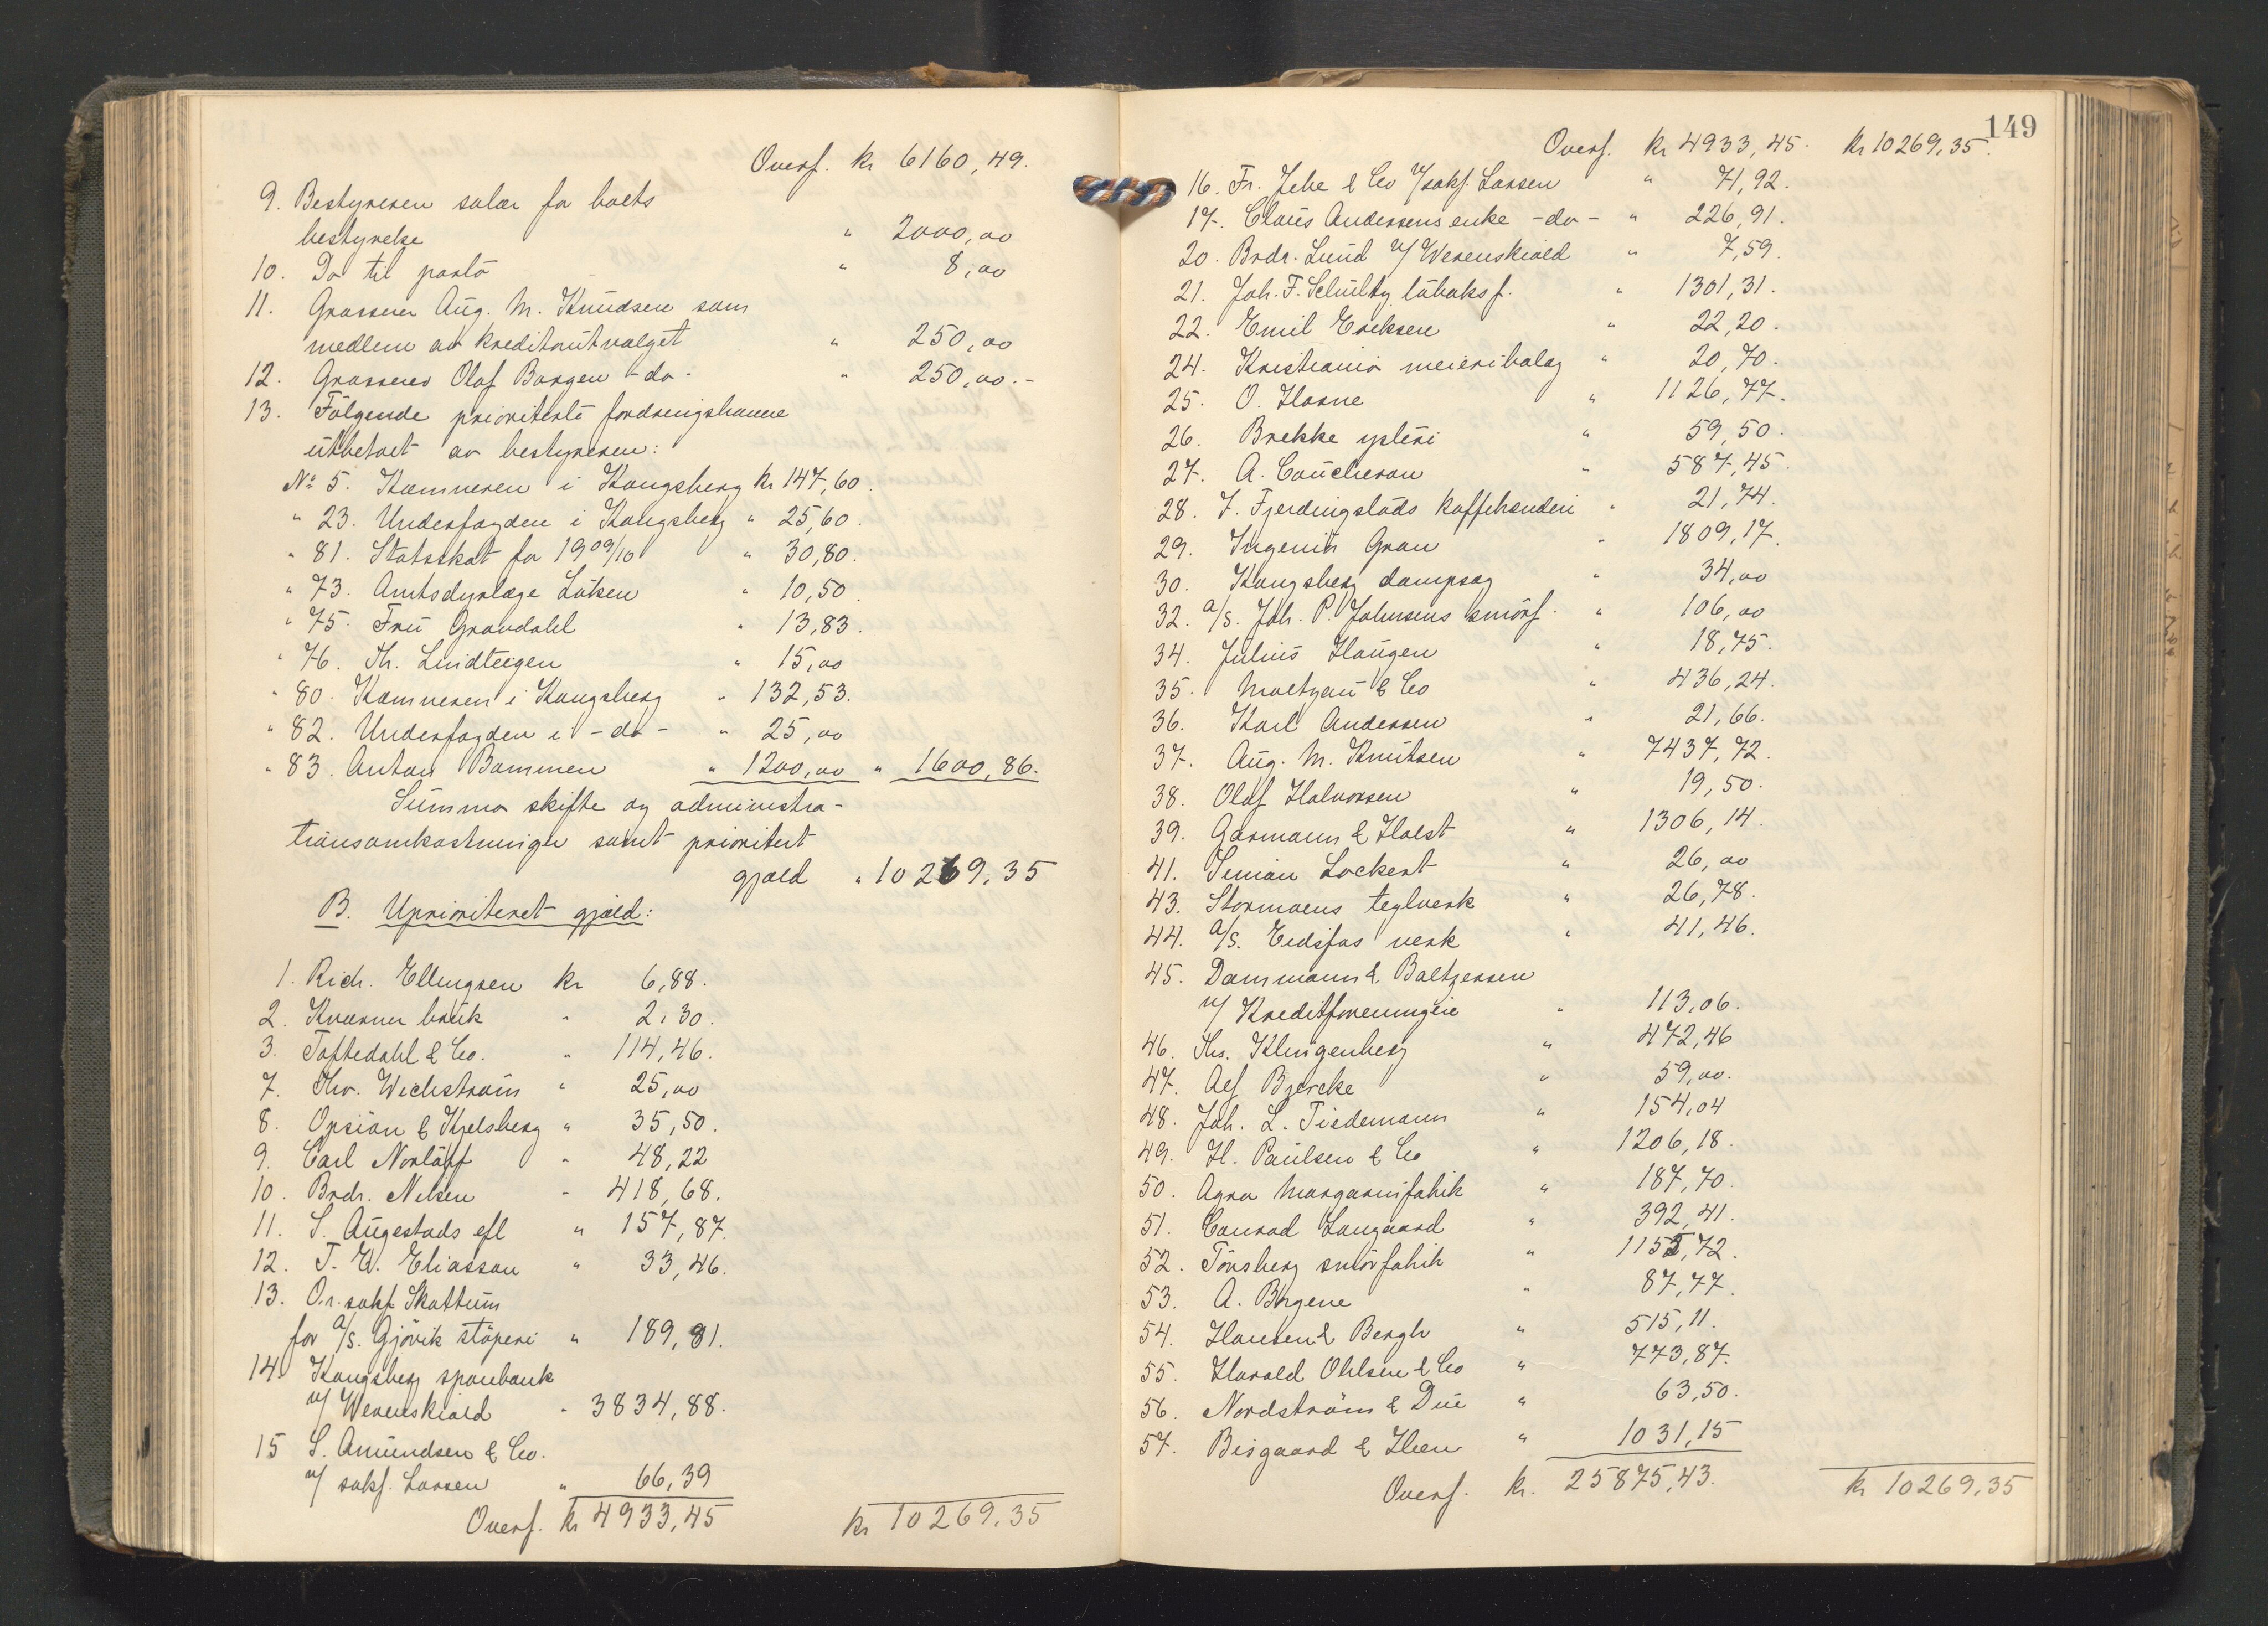 Overf. kr 6160,49.
9. Bestyreren salær for boets
bestyrelse " 2000,00
10. Do til porto " 8,00
11. Grosserer Aug. M. Knudsen som
medlem av kreditorutvalget " 250,00
12. Grosserer Olaf Borgen - do - " 250,00.-
13. Følgende prioriterte fordringshavere
utbetalt av bestyreren:
No 5. Kæmneren i Kongsberg kr 147,60.
" 23. Underfogden i Kongsberg " 25,60.
" 81. Statsskat for 1909/10 " 30,80.
" 73. Amtsdyrlæge Løken " 10,50.
" 75. Fru Grøndahl " 13,83.
" 76. Th. Lindteigen " 15,00
" 80. Kæmneren i Kongsberg " 132,53.
" 82. Underfogden i - do - " 25,00
" 83. Anton Bommen " 1200,00 " 1600,86.
Summa skifte og administra-
tionsomkostninger samt prioritert
gjæld " 10269,35
B. Uprioriteret gjæld:
1. Rich. Ellingsen kr 6,88.
2. Kværner bruk " 2,30.
3. Toftedahl & Co. " 114,46.
7. Thv. Wickstrøm " 25,00
8. Opsion & Kjelsberg " 35,50.
9. Carl Norløff " 48,22
10. Brdr. Nilsen " 418,68.
11. S. Augestads efl " 157,87.
12. J. W. Eliasson " 33,46.
13. O.r.sakf. Skattum
for A/S. Gjøvik støperi " 189,81.
14. Kongsberg sparebank
v/ Werenskiold " 3834,88.
15 S. Amundsen & Co.
v/ sakf. Larsen " 66,39
Overf. kr 4933,45 kr 10269,35
149
Overf. kr 4933,45. kr 10269,35.
16. Fr. Jebe & Co v/sakf. Larsen " 71,92.
17. Claus Andersens enke - do - " 226,91.
20. Brdr. Lund v/ Werenskiold " 7,59.
21. Joh. F. Schultz tobaksf. " 1301,31.
22. Emil Eriksen " 22,20.
24. Kristiania meieribolag " 20,70.
25. O. Horne " 1126,77.
26. Brekke ysteri " 59,50.
27. A. Coucheron " 587,45.
28. J. Fjerdingstads kaffebrenderi " 21,74.
29. Ingeniør Gran " 1809,17.
30. Kongsberg dampsag " 34,00
32. A/S. Joh. P. Johnsens smørf. " 106,00
34. Julius Haugen " 18,75.
35. Moltzau & Co " 436,24.
36. Karl Andersen " 21,66.
37. Aug. M. Knutsen " 7437,72.
38. Olaf Halvorsen " 19,50.
39. Garmann & Holst " 1306,14.
41. Simon Lockert " 26,00
43. Stormoens teglverk " 26,78.
44. A/S. Eidsfos verk " 41,46.
45. Dammann & Baltzersen
v/ Kreditforeningen " 113,06.
46. Ths. Klingenberg " 472,46
47. Alf Bjercke " 59,00.
48. Joh. L. Tiedemann " 154,04
49. H. Paulsen & Co " 1206,18.
50. Agra Margarinfabrik " 187,70.
51. Conrad Langaard " 392,41.
52. Tønsberg smørfabrik " 1155,72.
53. A. Borgene " 87,77.
54. Hansen & Bergh " 515,11.
55. Harald Ohlsen & Co " 773,87.
56. Nordstrøm & Due " 63,50.
57. Bisgaard & Høen " 1031,15
Overf. kr. 25875,43. kr 10269,35